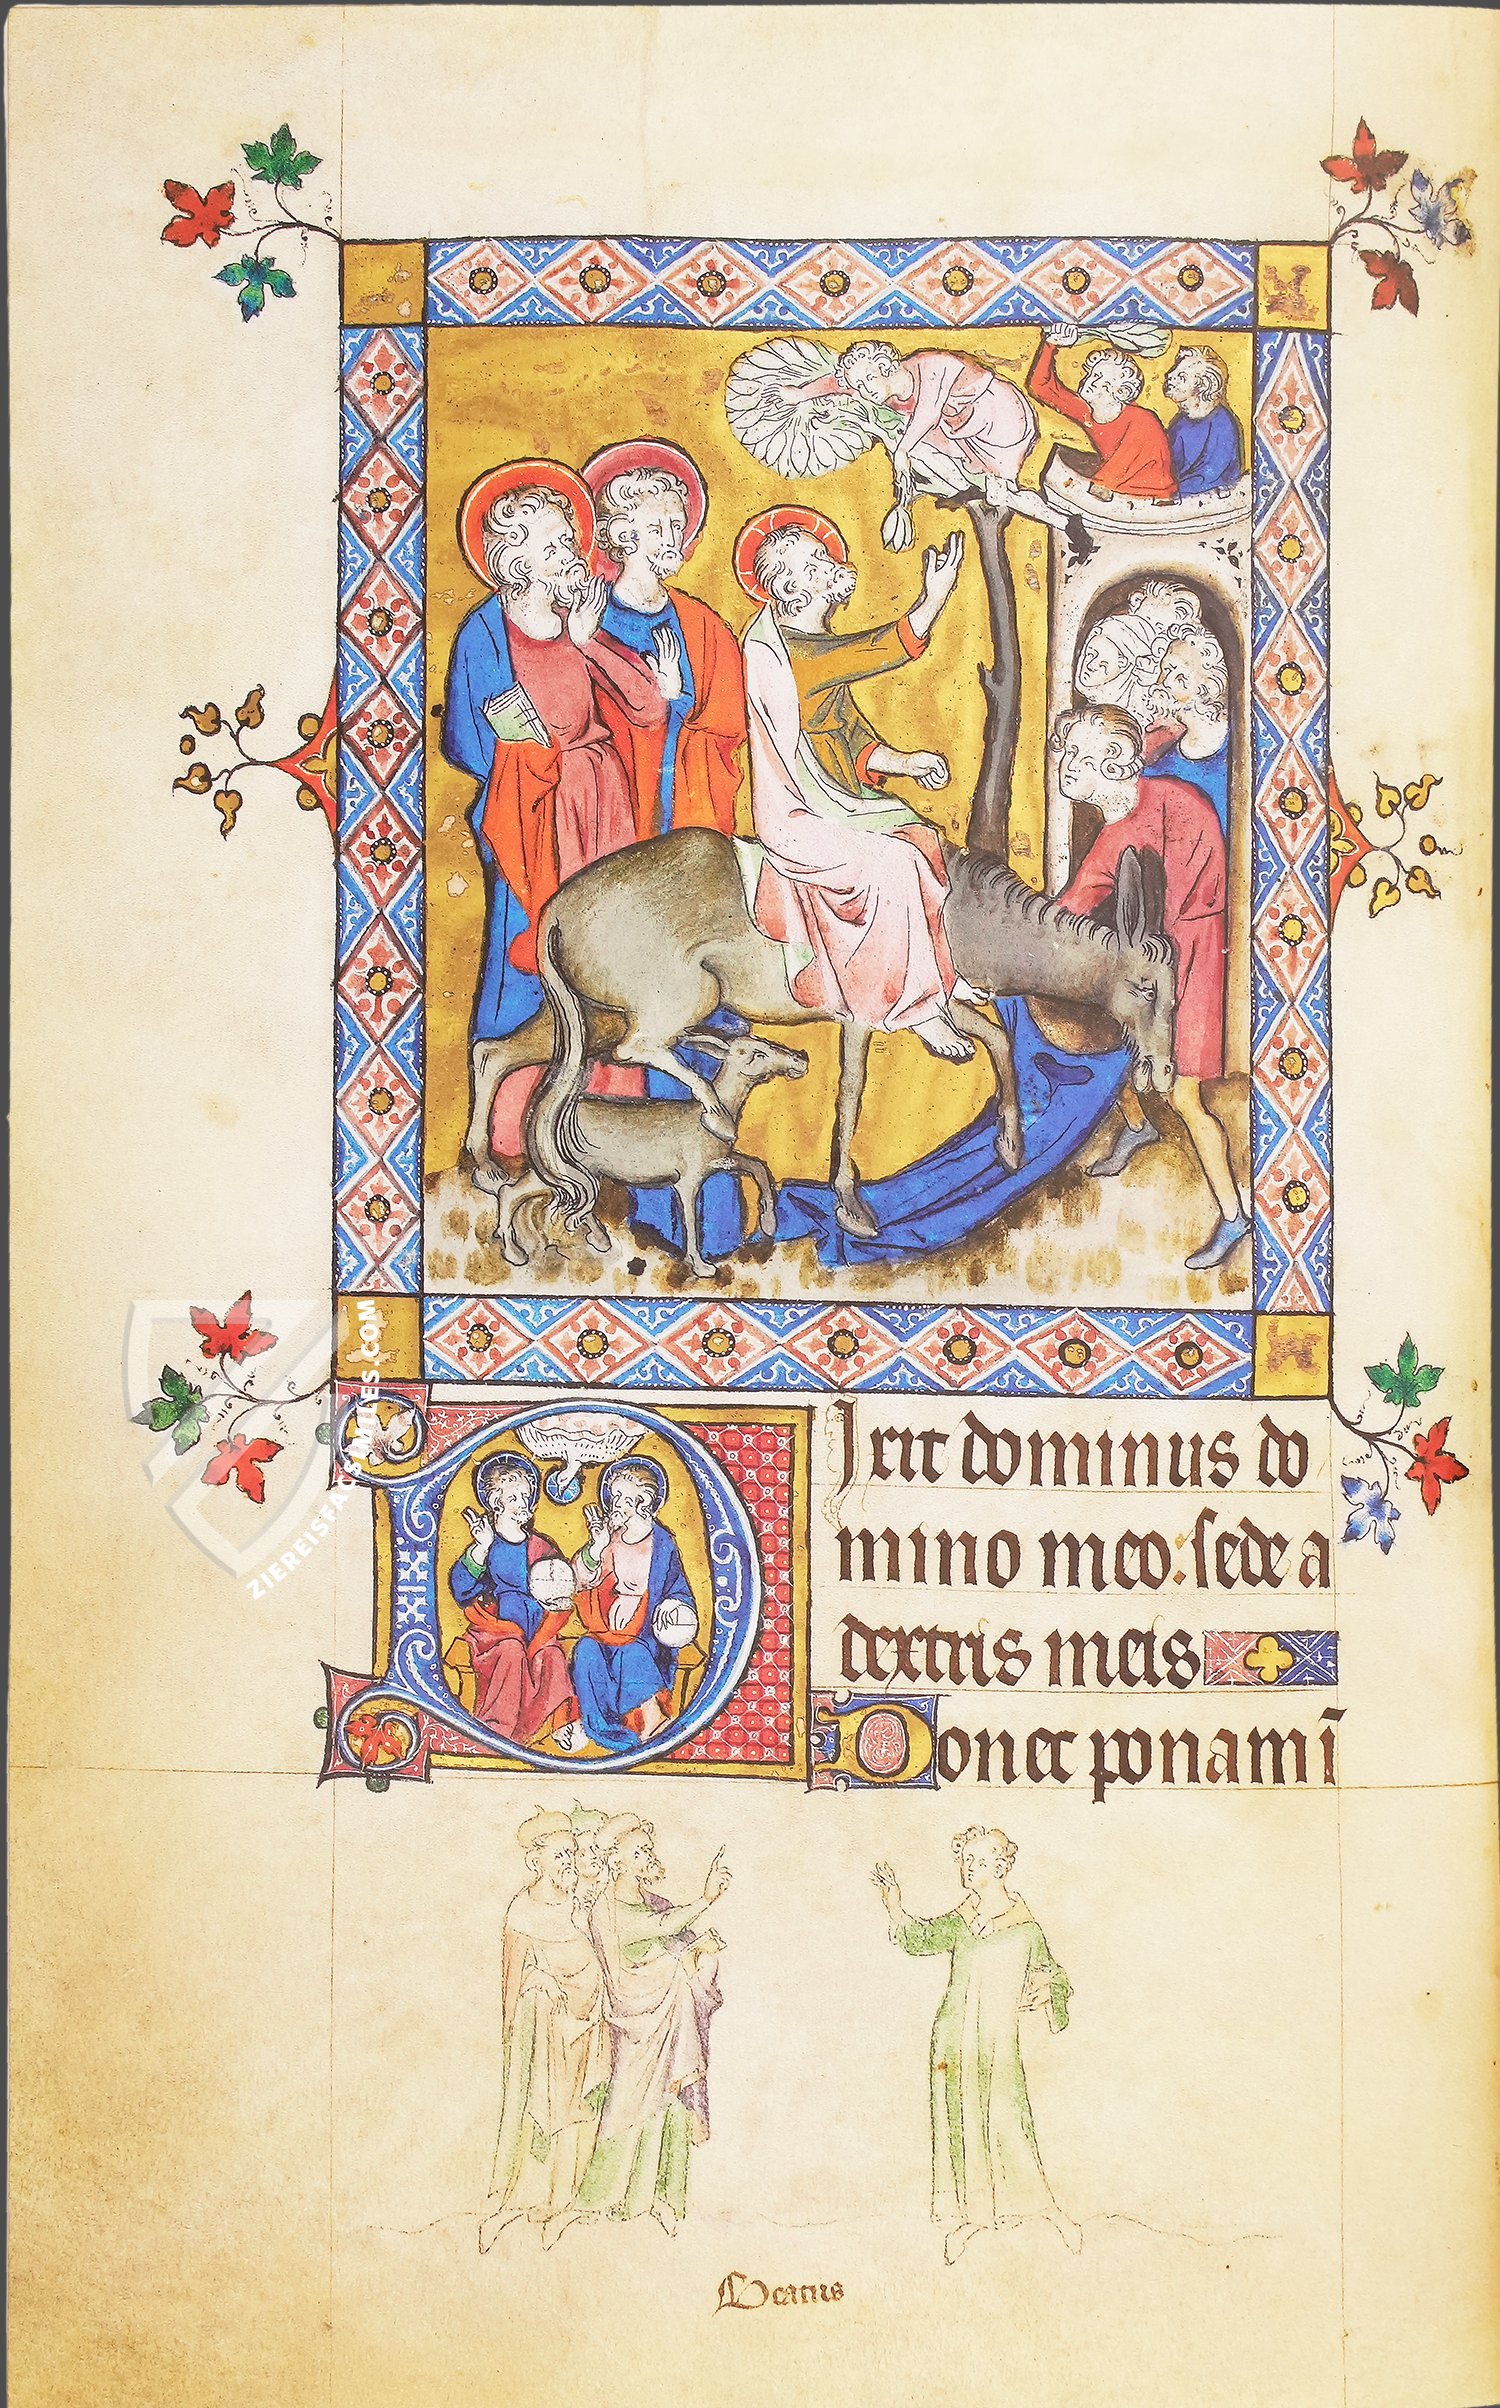 Dixit dominus do
mino meo: sede a
dextris meis
Donec ponam i
Beatus
ZIEREISFACSIMILES.COM